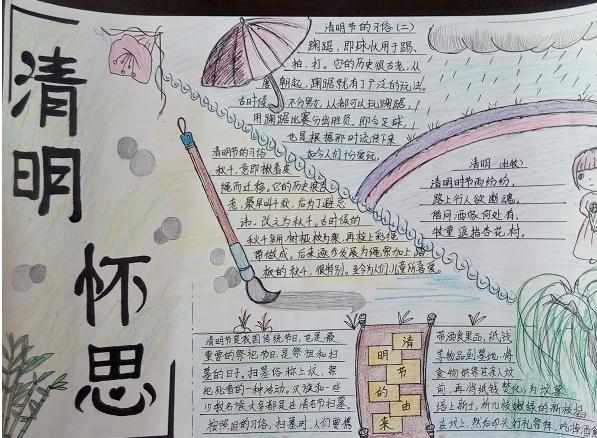 清明
怀思
清明节的习俗(二)
蹴踘，即球状用于踢、
拍、打。它的历史很古老，从
唐朝起，蹴踘就有了广泛的玩法。
古时候，不分男女，人人都可以玩蹴踘，
用蹴踘比赛分出胜负，即今足球，
也是根据那时流传下来
如今人们十分爱玩。
清明节的习俗
秋千，意即揪着皮
绳而迁移。它的历史很古
老，最早叫千秋，后为了避忌
讳，改之为秋千。古时候的
秋千多用树桠枝为架，再拴上彩绳
带做成。后来逐步发展为绳索加上踏
板的秋千，很特别。至今为人们儿童所喜爱。
清明 (杜牧)
清明时节雨纷纷，
路上行人欲断魂。
借问酒家何处有，
牧童遥指杏花村。
清明节是我国传统节日，也是最
重要的祭祀节日，是祭祖和扫
墓的日子。扫墓俗称上坟，祭
祀死者的一种活动。汉族和一些
少数民族大多都是在清明节扫墓。
按照旧的习俗，扫墓时，人们要携
清明节的由来
带酒食果品、纸钱
等物品到墓地，将
食物供祭在亲人坟
前，再将纸钱焚化，为坟墓
培上新土，折几枝嫩绿的新枝插
在坟上，然后叩头行礼祭拜，